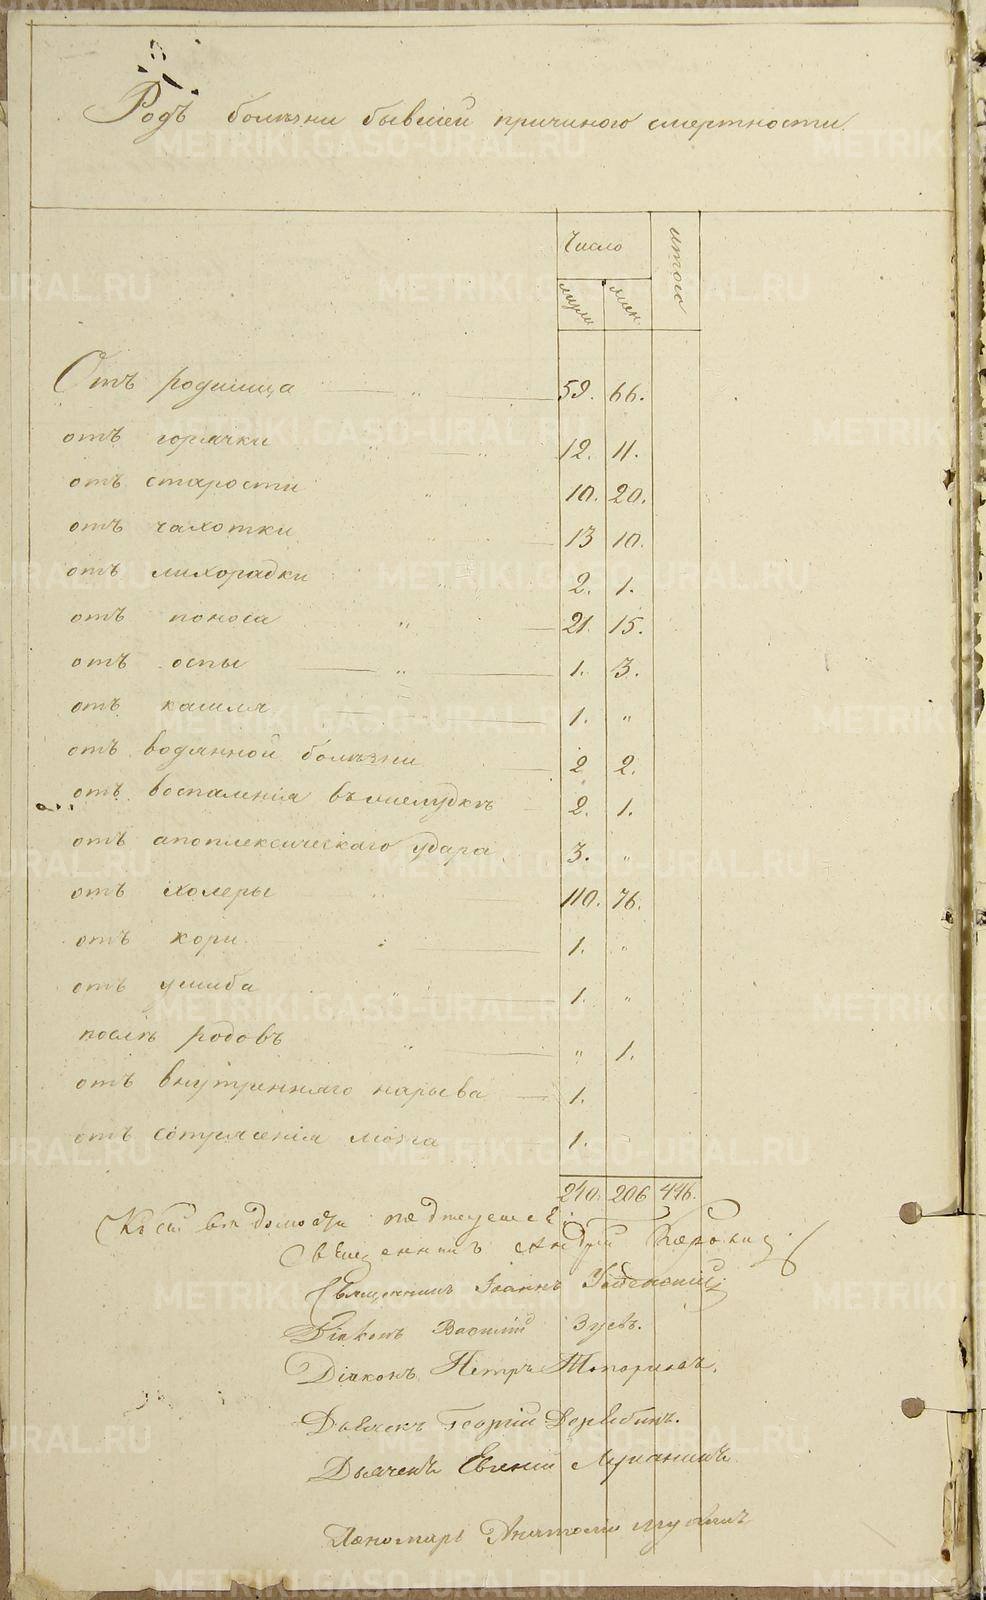 Родъ болѣзни бывшей причиною смертности
Число итого
муж. жен.
Отъ родимца „ 59. 66.
отъ горячки „ „ 12. 11.
отъ старости „ 10. 20.
отъ чахотки „ 13 10.
отъ лихорадки „ 2. 1.
отъ поноса „ 21. 15.
отъ оспы „ 1. 3.
отъ кашля 1. „
отъ водянной болѣзни 2 2.
отъ воспаленія въ желудкѣ 2. 1.
отъ апоплексическаго удара 3. „
отъ холеры „ 110. 76.
отъ кори 1. „
отъ ушиба „ 1. „
послѣ родовъ „ „ 1.
отъ внутренняго нарыва 1.
отъ сотрясенія мозга 1.
240. 206 446.
Къ сей вѣдомости
Священникъ Андрей
Священникъ Іоаннъ Успенскій
Діаконъ Василій Зуевъ.
Діаконъ Петръ Топорковъ.
Дьячекъ Георгій Дерябинъ.
Дьячекъ Евгеній Луканинъ
Пономарь Анатолій
METRIKI.GASO-URAL.RU